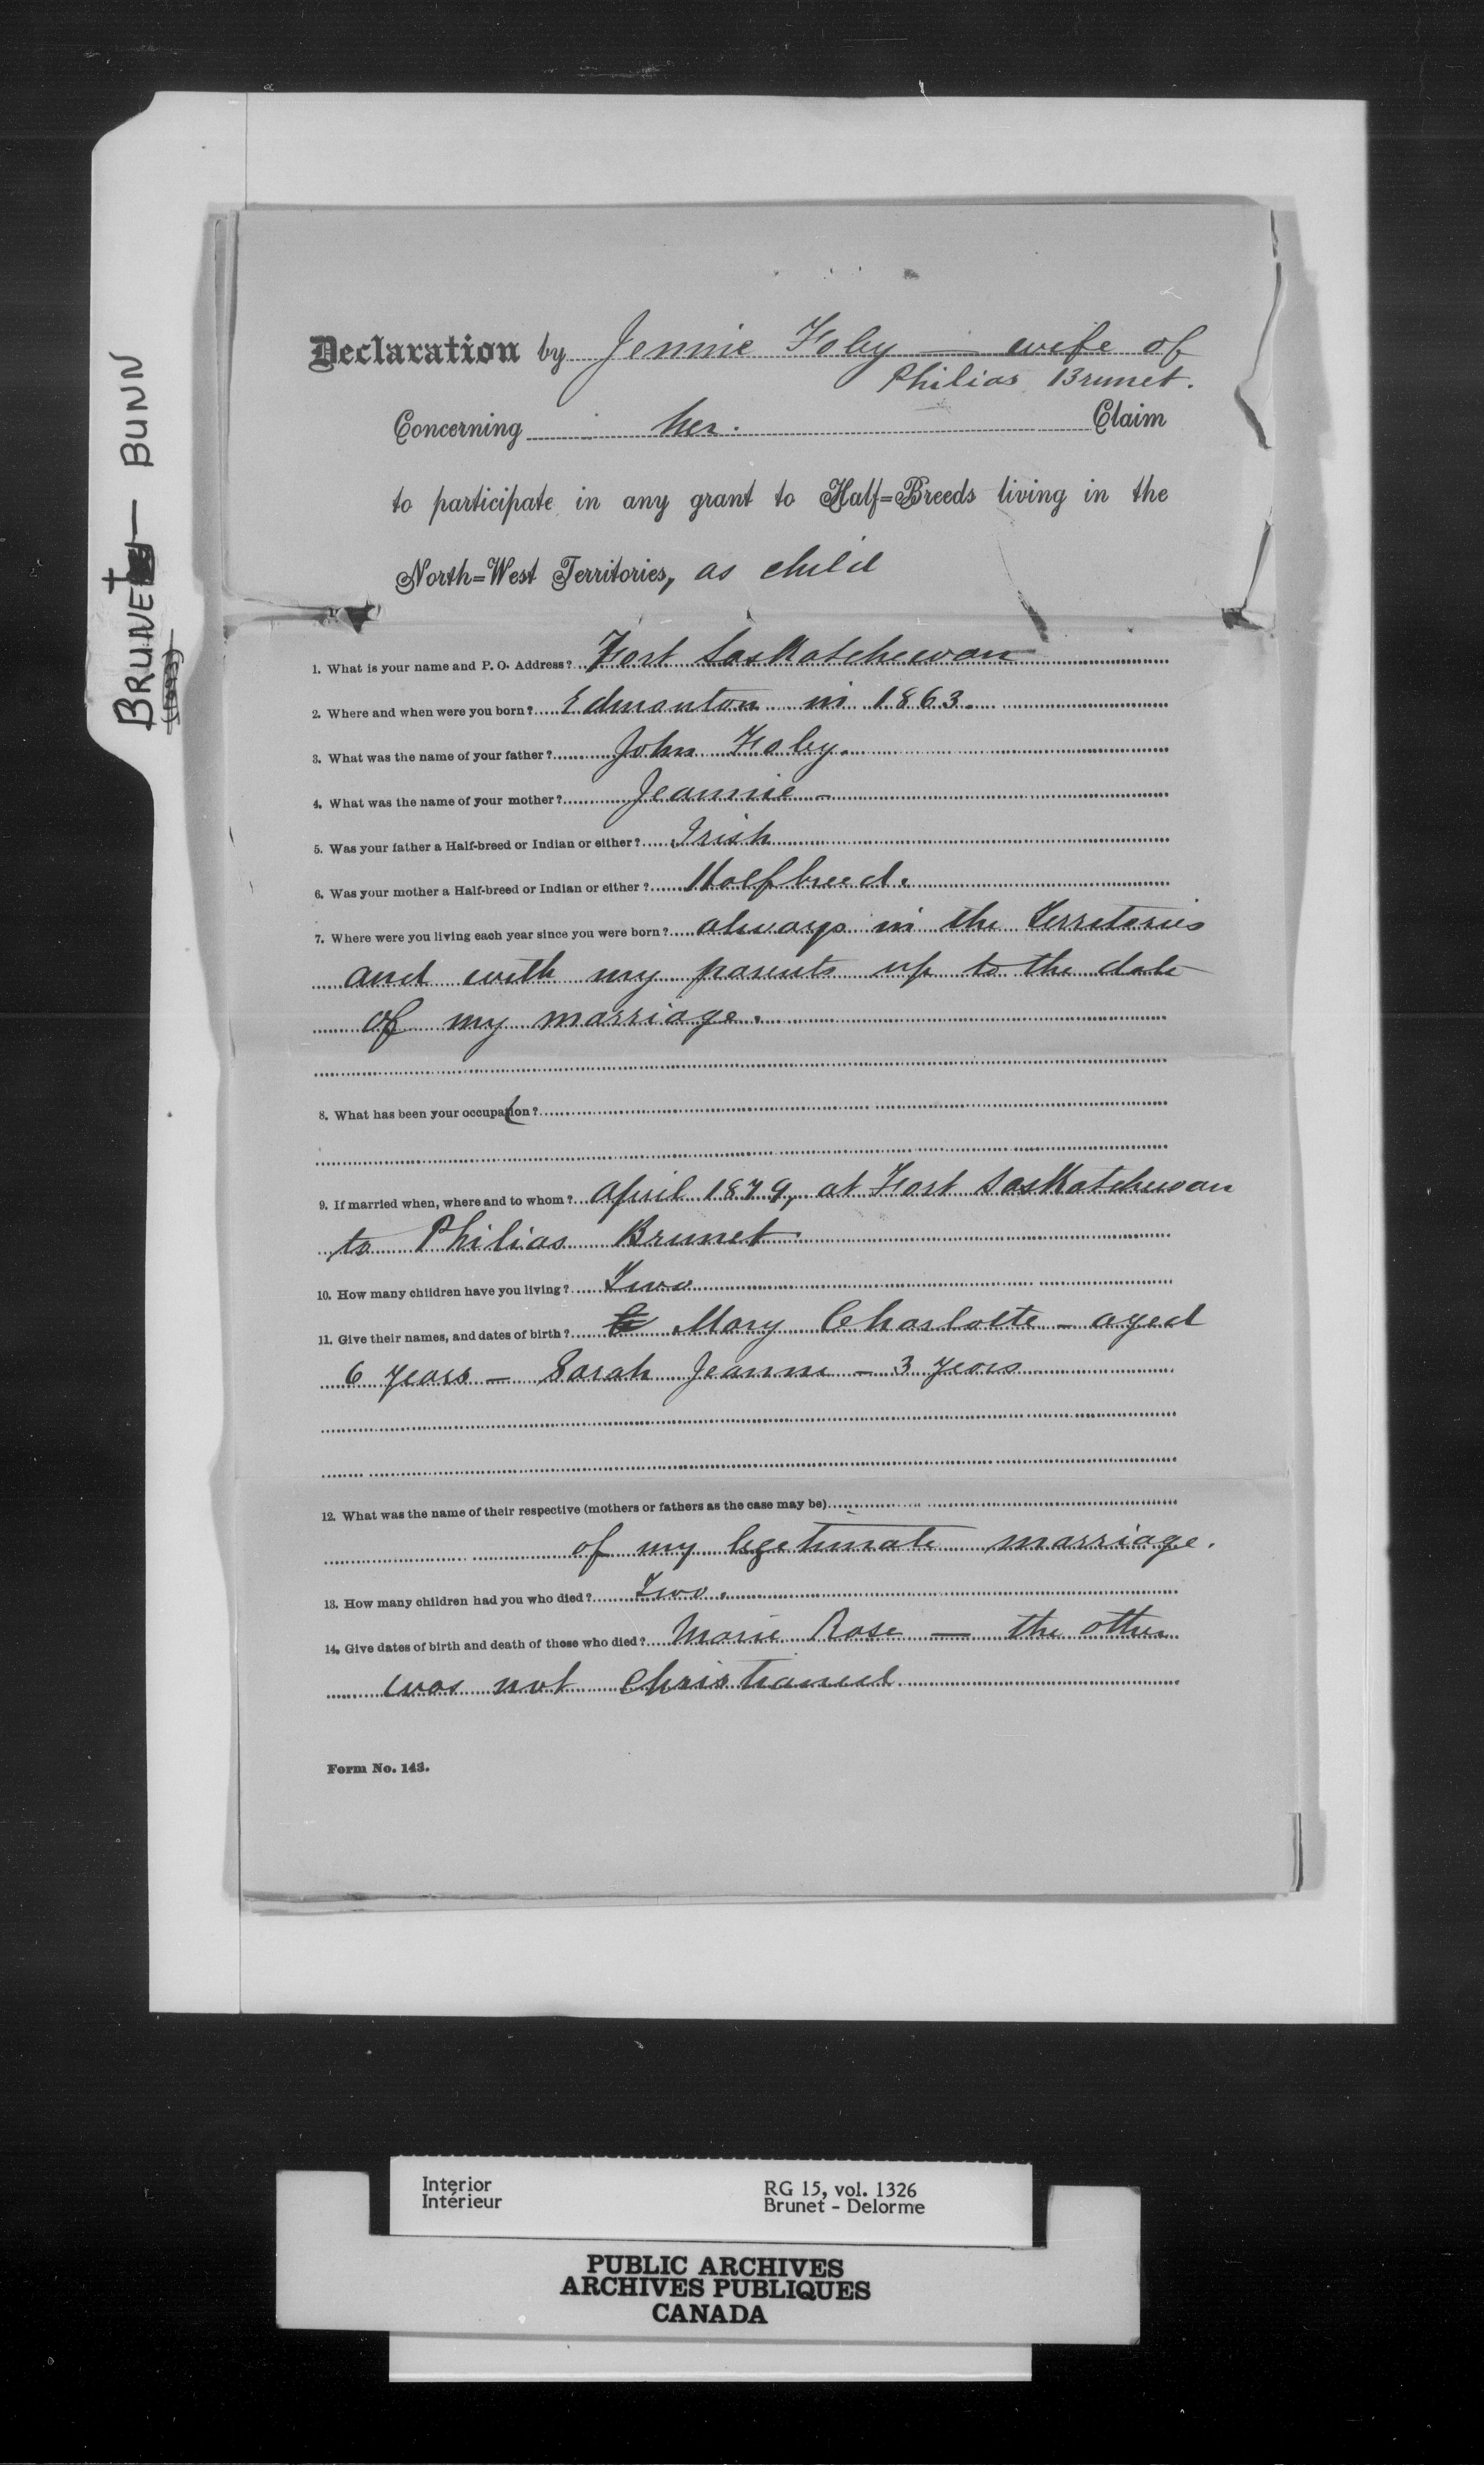 BRUNET — BUNN
Declaration by Jennie Foley — wife of
Philias Brunet.
Concerning her. Claim
to participate in any grant to Half=Breeds living in the
North=West Territories, as child
1. What is your name and P. O. Address? Fort Saskatchewan
2. Where and when were you born? Edmonton in 1863.
3. What was the name of your father? John Foley.
4. What was the name of your mother? Jeannie –
5. Was your father a Half-breed or Indian or either? Irish
6. Was your mother a Half-breed or Indian or either? Halfbreed.
7. Where were you living each year since you were born? always in the Territories
and with my parents up to the date
of my marriage.
8. What has been your occupation?
9. If married when, where and to whom? April 1879, at Fort Saskatchewan
to Philias Brunet.
10. How many children have you living? Two
11. Give their names, and dates of birth? Mary Charlotte – aged
6 years – Sarah Jeanne – 3 years
12. What was the name of their respective (mothers or fathers as the case may be)
of my legetimate marriage.
13. How many children had you who died? Two.
14. Give dates of birth and death of those who died? Marie Rose — the other
was not christianed
Form No. 143.
Interior RG 15, vol. 1326
Intérieur Brunet - Delorme
PUBLIC ARCHIVES
ARCHIVES PUBLIQUES
CANADA